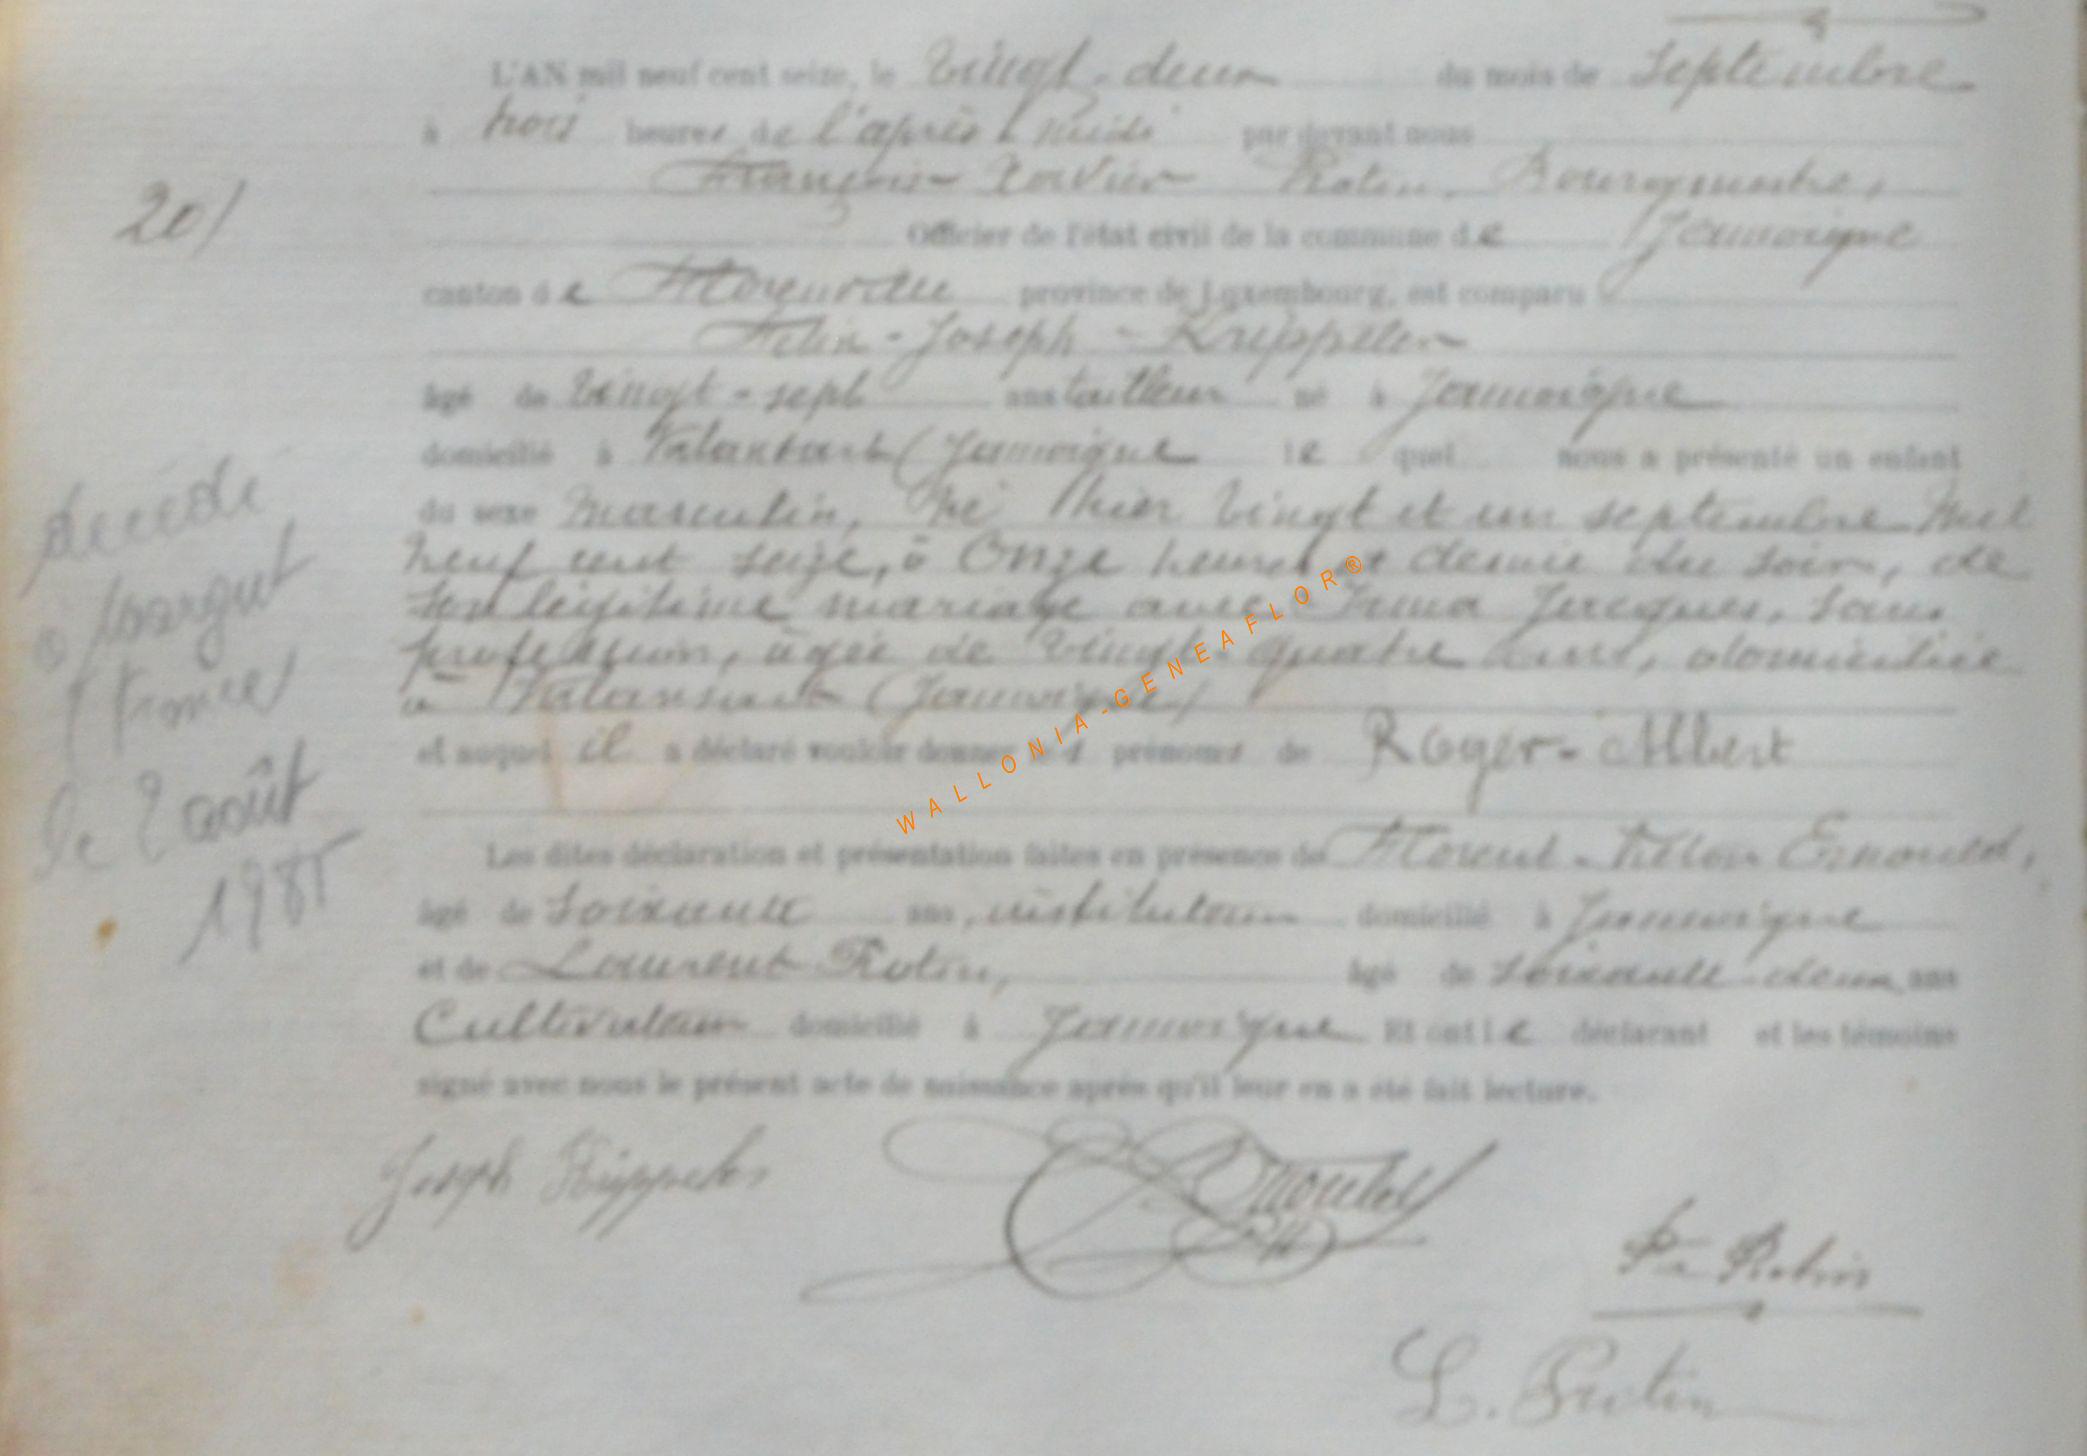 L'AN mil neuf cent seize, le vingt-deux du mois de septembre
à trois heures de l'après-midi par devant nous
François Xavier Bourgmestre,
20/
Officier de l'état civil de la commune de Jamoigne
canton de Florenville province de Luxembourg, est comparu
Félix-Joseph-Kuppelen
âgé de vingt-sept ans tailleur né à Jamoigne
domicilié à Valansart (Jamoigne le quel nous a présenté un enfant
du sexe masculin, né hier vingt et un septembre mil
neuf cent seize, à onze heures et demie du soir, de
son légitime mariage avec Irma Jacques, sans
profession, âgée de vingt-quatre ans, domiciliée
à Valansart (Jamoigne)
et auquel il a déclaré vouloir donner les prénoms de Roger-Albert
décédé
à Margut
(France)
le 2 août
1985
WALLONIA-GENEAFLOR®
Les dites déclaration et présentation faites en présence de Florent Ernould,
âgé de soixante ans, instituteur domicilié à Jamoigne
et de Laurent âgé de soixante-deux ans
Cultivateur domicilié à Jamoigne Et ont le déclarant et les témoins
signé avec nous le présent acte de naissance après qu'il leur en a été fait lecture.
Joseph
Ernould
L.